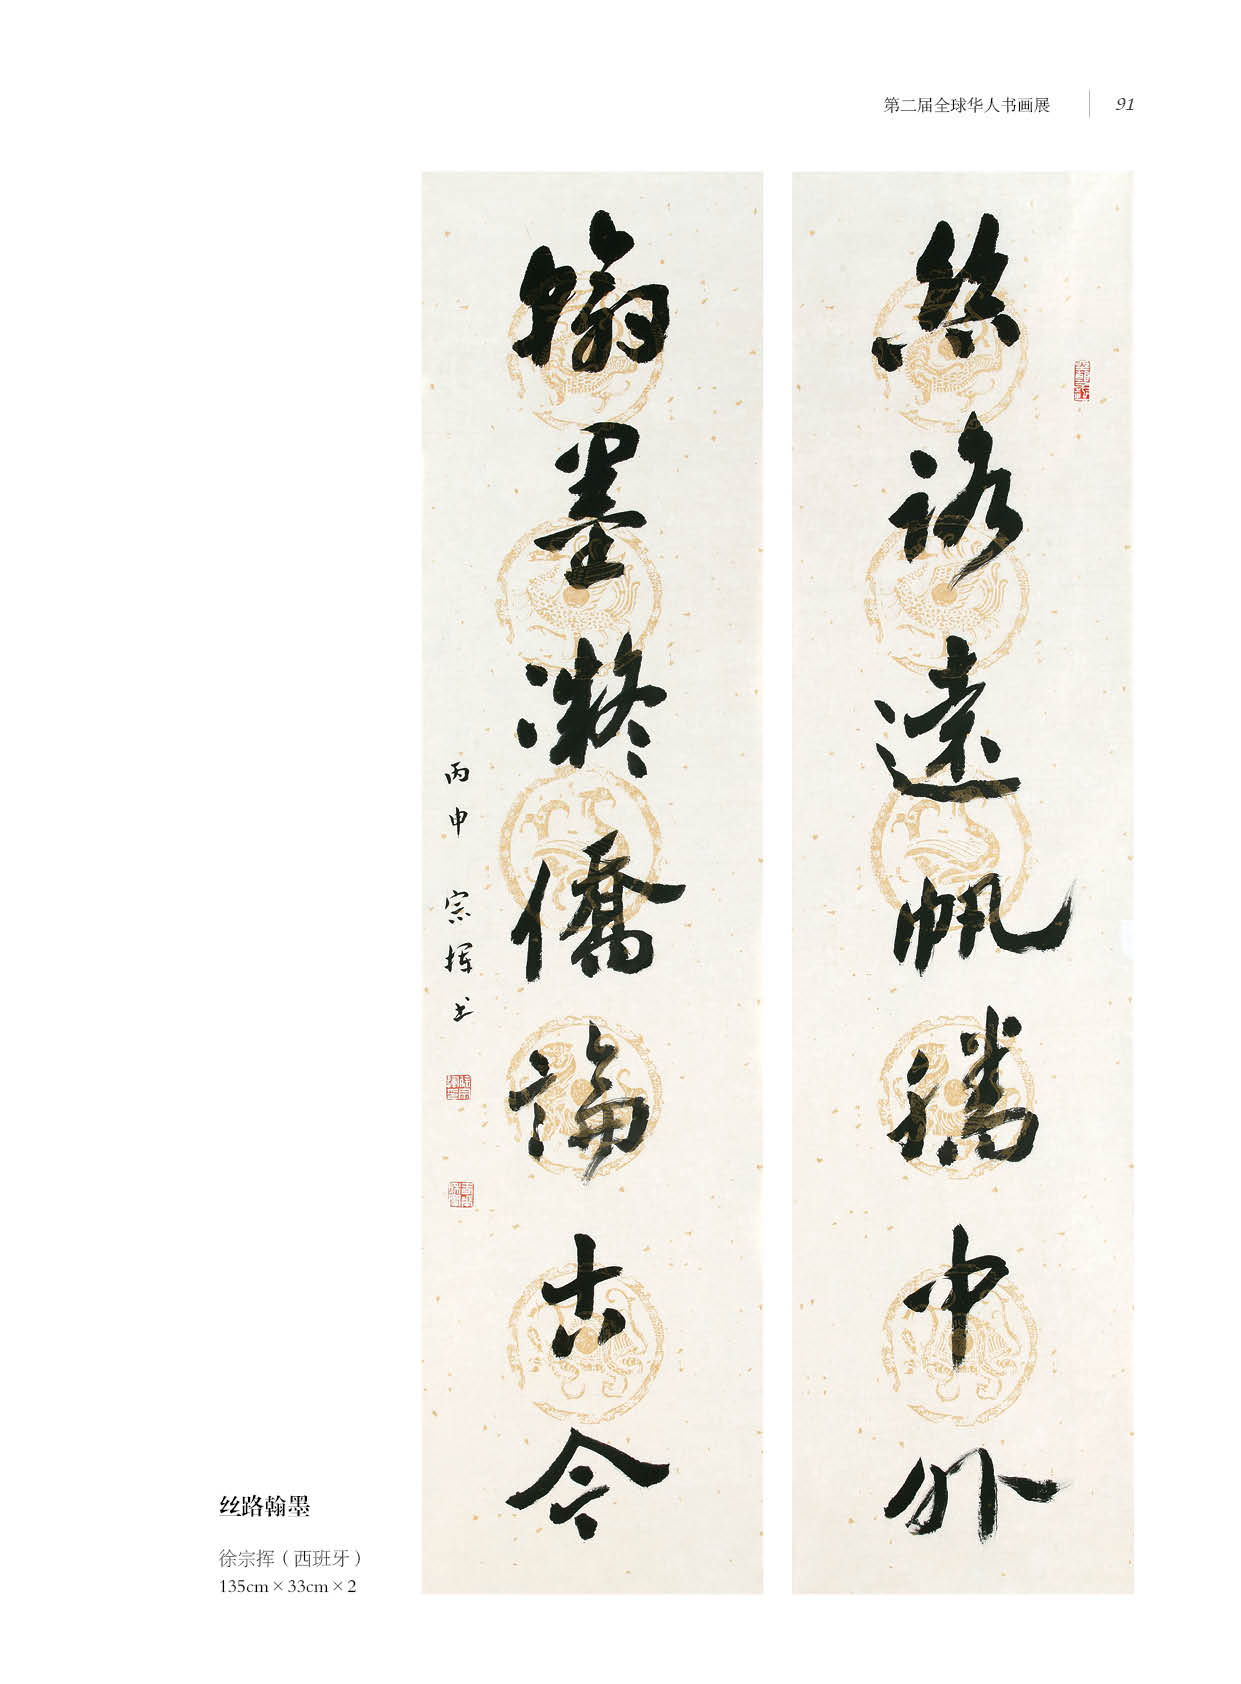 第二届全球华人书画展 91
絲路遠帆中外
翰墨凝僑論古今
丙申 宗挥书
丝路翰墨
徐宗挥（西班牙）
135cm × 33cm × 2